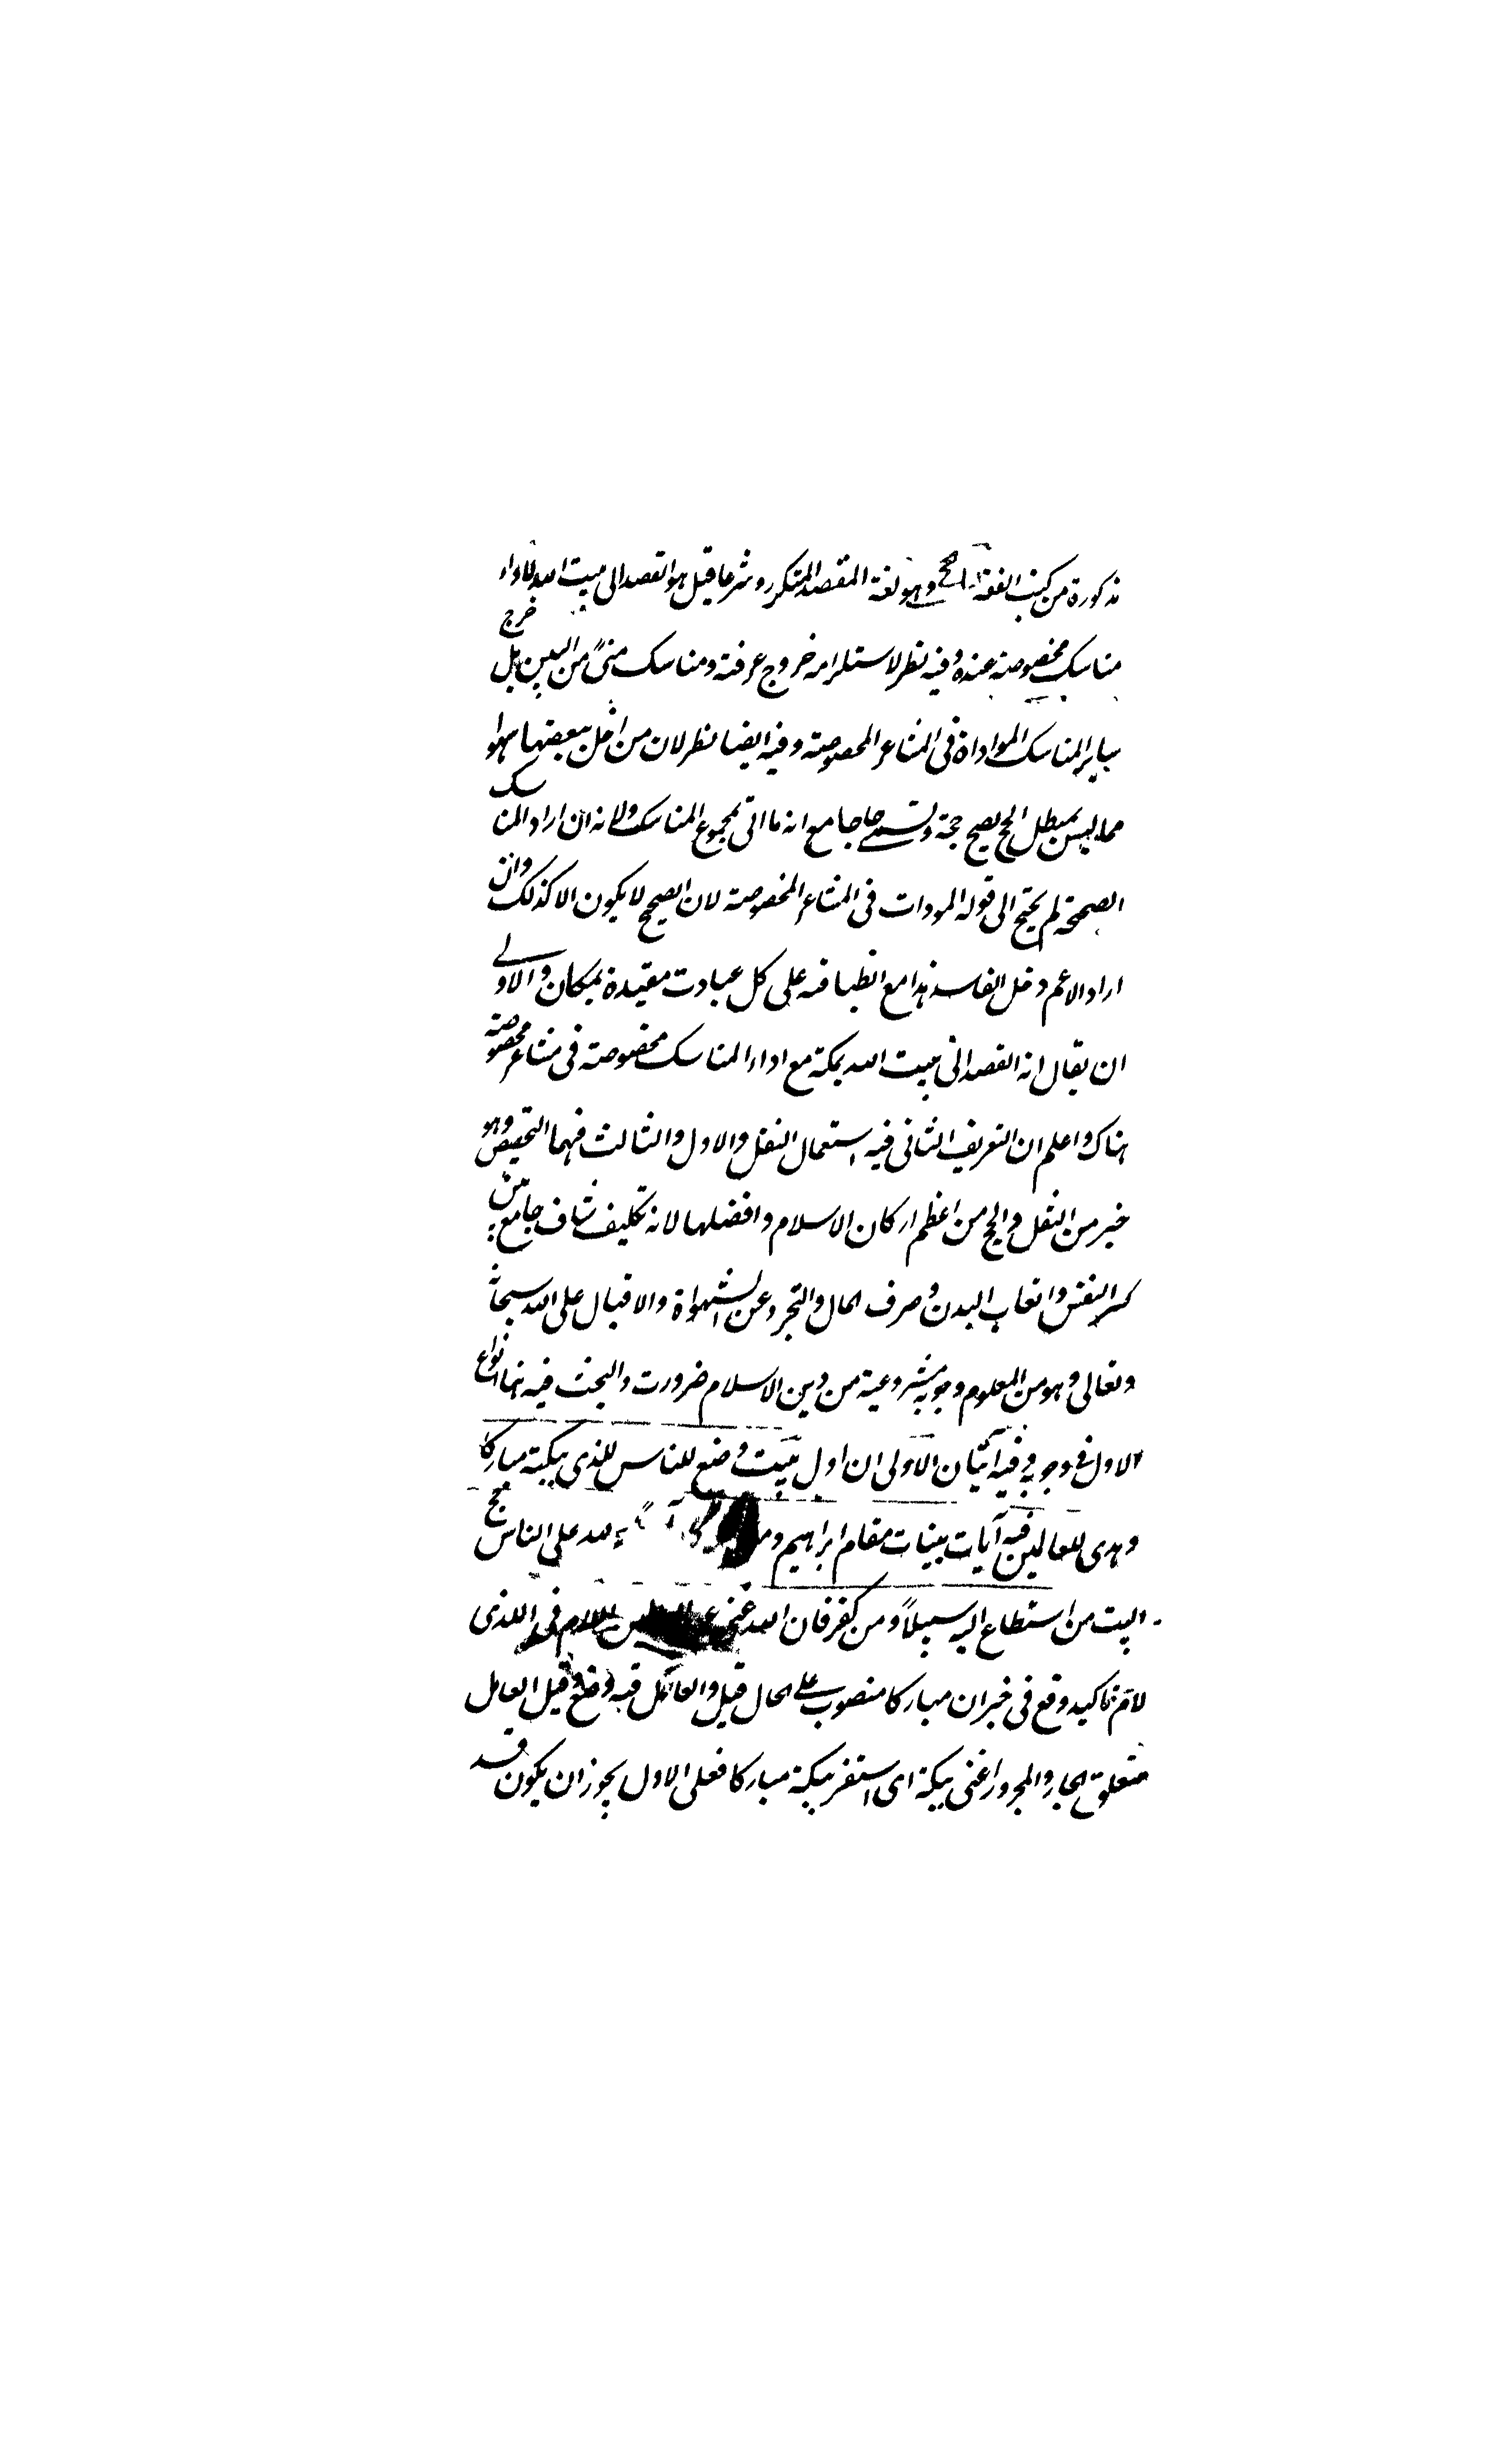 مذكورة من كتب الفقه الحج وهو لغة المقصد المتكرر وشرعا قيل هو القصد الى بيت الله لاداء
مناسك مخصوصة عنده وفيه نظر لاستلزامه خروج عرفة ومناسك منىً من البين بل خرج
ساير المناسك الموداة فى المشاعر المخصوصة وفيه ايضا نظر لان من اخل ببعضها سهوا
مما ليس بمبطل الحج يصح حجة ويسمى حاجا مع انه ما اتى بمجموع المناسك ولانه ان اراد المناسك
الصحيحة لم يحتج الى قوله المودات فى المشاعر المخصوصة لان الصحيح لا يكون الا كذلك وان
اراد الاعم دخل الفاسد هذا مع انطباقه على كل عبادت مقيدة بمكان والاولى
ان يقال انه القصد الى بيت الله بمكة مع اداء المناسك مخصوصة فى مشاعر مخصوصة
هناك واعلم ان التعريف الثانى فيه استعمال النقل والاول والثالث فيهما التخصيص وهو
خير من النقل والحج من اعظم اركان الاسلام وافضلها لانه تكليف شاف جامع بين
كسر النفس واتعاب البدن وصرف المال والتجرد عن الشهواة والاقبال على الله سبحانه
وتعالى وهو من المعلوم وجوبه مشروعية من دين الاسلام ضرورت والبحث فيه هنا انواع
الاول فى وجوبه وفيه آيتان الاولى ان اول بيت وضع للناس للذى ببكة مباركا
وهدى للعالمين فيه آيات بينات مقام ابراهيم ومن لله على الناس حج
البيت من استطاع اليه سبيلاً ومن كفر فان الله غنى اللام فى للذى
لام تاكيد وقع فى خبر ان مباركا منصوب على الحال قيل والعامل فيه وضع وقيل العامل
متعلق الجار والمجرور اعنى ببكة اى استقر ببكة مباركا فعلى الاول يجوز ان يكون قد